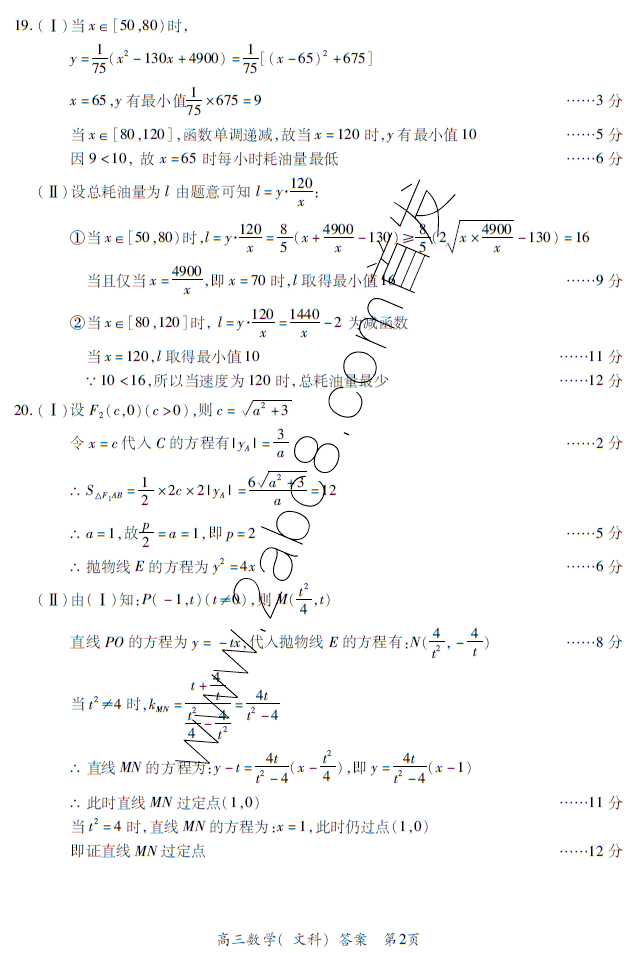 19. (Ⅰ)当 x∈[50,80)时,
y=1/75(x²-130x+4900)=1/75[(x-65)²+675]
x=65,y有最小值1/75×675=9 ……3分
当x∈[80,120],函数单调递减,故当x=120时,y有最小值10 ……5分
因9<10, 故x=65时每小时耗油量最低 ……6分
(Ⅱ)设总耗油量为l 由题意可知l=y·120/x;
①当x∈[50,80)时,l=y·120/x=8/5(x+4900/x-130)≥8/5(2√(x×4900/x)-130)=16
当且仅当x=4900/x,即x=70时,l取得最小值16 ……9分
②当x∈[80,120]时, l=y·120/x=1440/x-2 为减函数
当x=120,l取得最小值10 ……11分
∵10<16,所以当速度为120时,总耗油量最少 ……12分
20. (Ⅰ)设F₂(c,0)(c>0),则c=√(a²+3)
令x=c代入C的方程有|y_A|=3/a ……2分
∴S_△F₁AB=1/2×2c×2|y_A|=6√(a²+3)/a=12
∴a=1,故p/2=a=1,即p=2 ……5分
∴抛物线E的方程为y²=4x ……6分
(Ⅱ)由(Ⅰ)知:P(-1,t)(t≠0),则M(t²/4,t)
直线PO的方程为y=-tx,代入抛物线E的方程有:N(4/t²,-4/t) ……8分
当t²≠4时,k_MN=(t+4/t)/(t²/4-4/t²)=4t/(t²-4)
∴直线MN的方程为:y-t=4t/(t²-4)(x-t²/4),即y=4t/(t²-4)(x-1)
∴此时直线MN过定点(1,0) ……11分
当t²=4时,直线MN的方程为:x=1,此时仍过点(1,0)
即证直线MN过定点 ……12分
高三数学( 文科) 答案 第2页